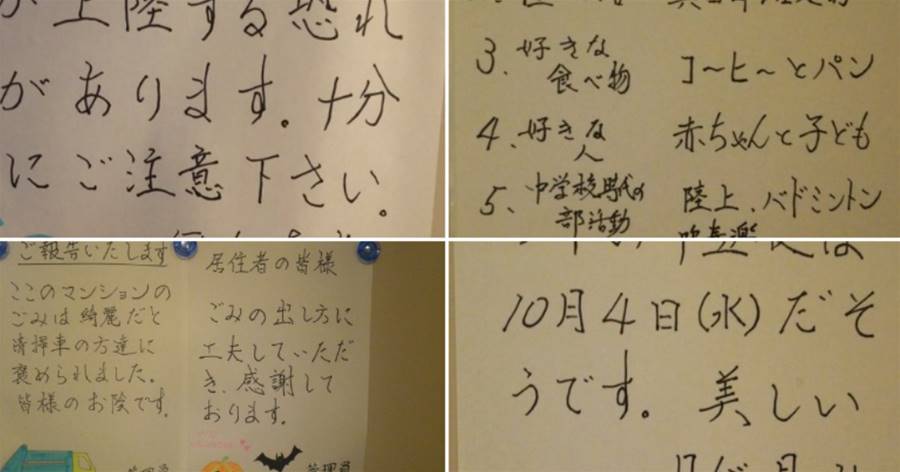 が上陸する恐れ
があります。十分
にご注意下さい。
3、好きな
食べ物
コーヒーとパン
4、好きな
人
赤ちゃんと子ども
5、中学校時代の
部活動
陸上、バドミントン
吹奏楽
ご報告いたします
ここのマンションの
ごみは綺麗だと
清掃車の方達に
褒められました。
皆様のお陰です。
居住者の皆様
ごみの出し方に
工夫していただ
き、感謝して
おります。
管理員
管理員
10月4日(水)だそ
うです。美しい